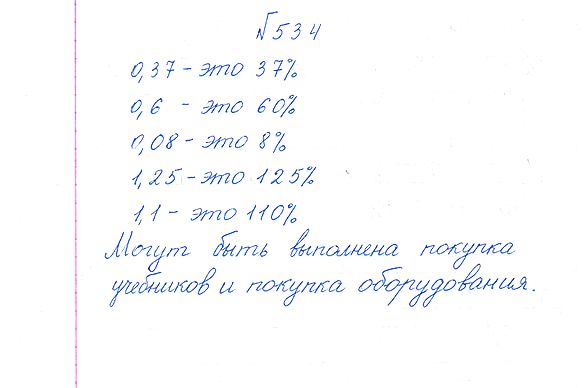 №534
0,37 - это 37%
0,6 - это 60%
0,08 - это 8%
1,25 - это 125%
1,1 - это 110%
Могут быть выполнена покупка
учебников и покупка оборудования.